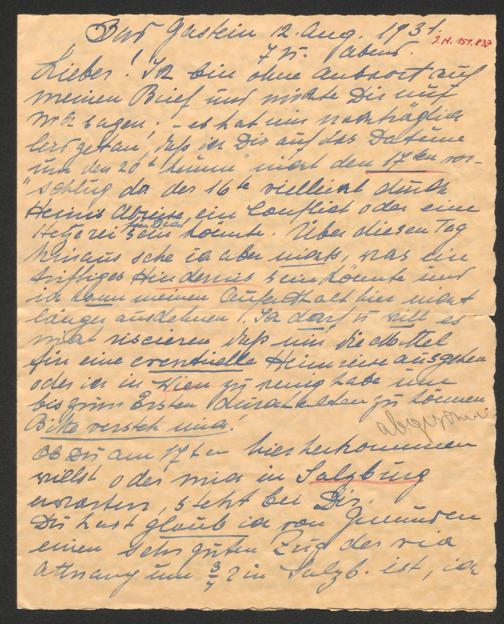 Bad Gastein 2. Aug. 1931.
J.N. 151.837
7 Abend.
Lieber! Ich bin ohne Antwort auf
meinen Brief und möchte Dir nur
sagen, – es hat mir nachträglich
leid getan, daß ich Dir auf das Datum
um den 20ten herum nicht den 17ten vor-
schlug da der 16te vielleicht durch
Heinis Abreise ein Conflict oder eine
Hetzerei sein könnte. Über diesen Tag
hinaus sehe ich aber nichts, was ein
triftiges Hindernis sein könnte und
ich kann meinen Aufenthalt hier nicht
länger ausdehnen! Ich darf u. will es
nicht riscieren daß mir die Mittel
für eine eventuelle Heimreise ausgehen
oder ich in Wien zu wenig habe um
bis zum Ersten durchhalten zu können
Bitte versteh mich!
Ob Du am 17ten hierherkommen
willst oder mich in Salzburg
erwarten, steht bei Dir.
Du hast glaub ich von Gmunden
einen sehr guten Zug der via
Attnang um 3/4 2 in Salzb. ist, ich